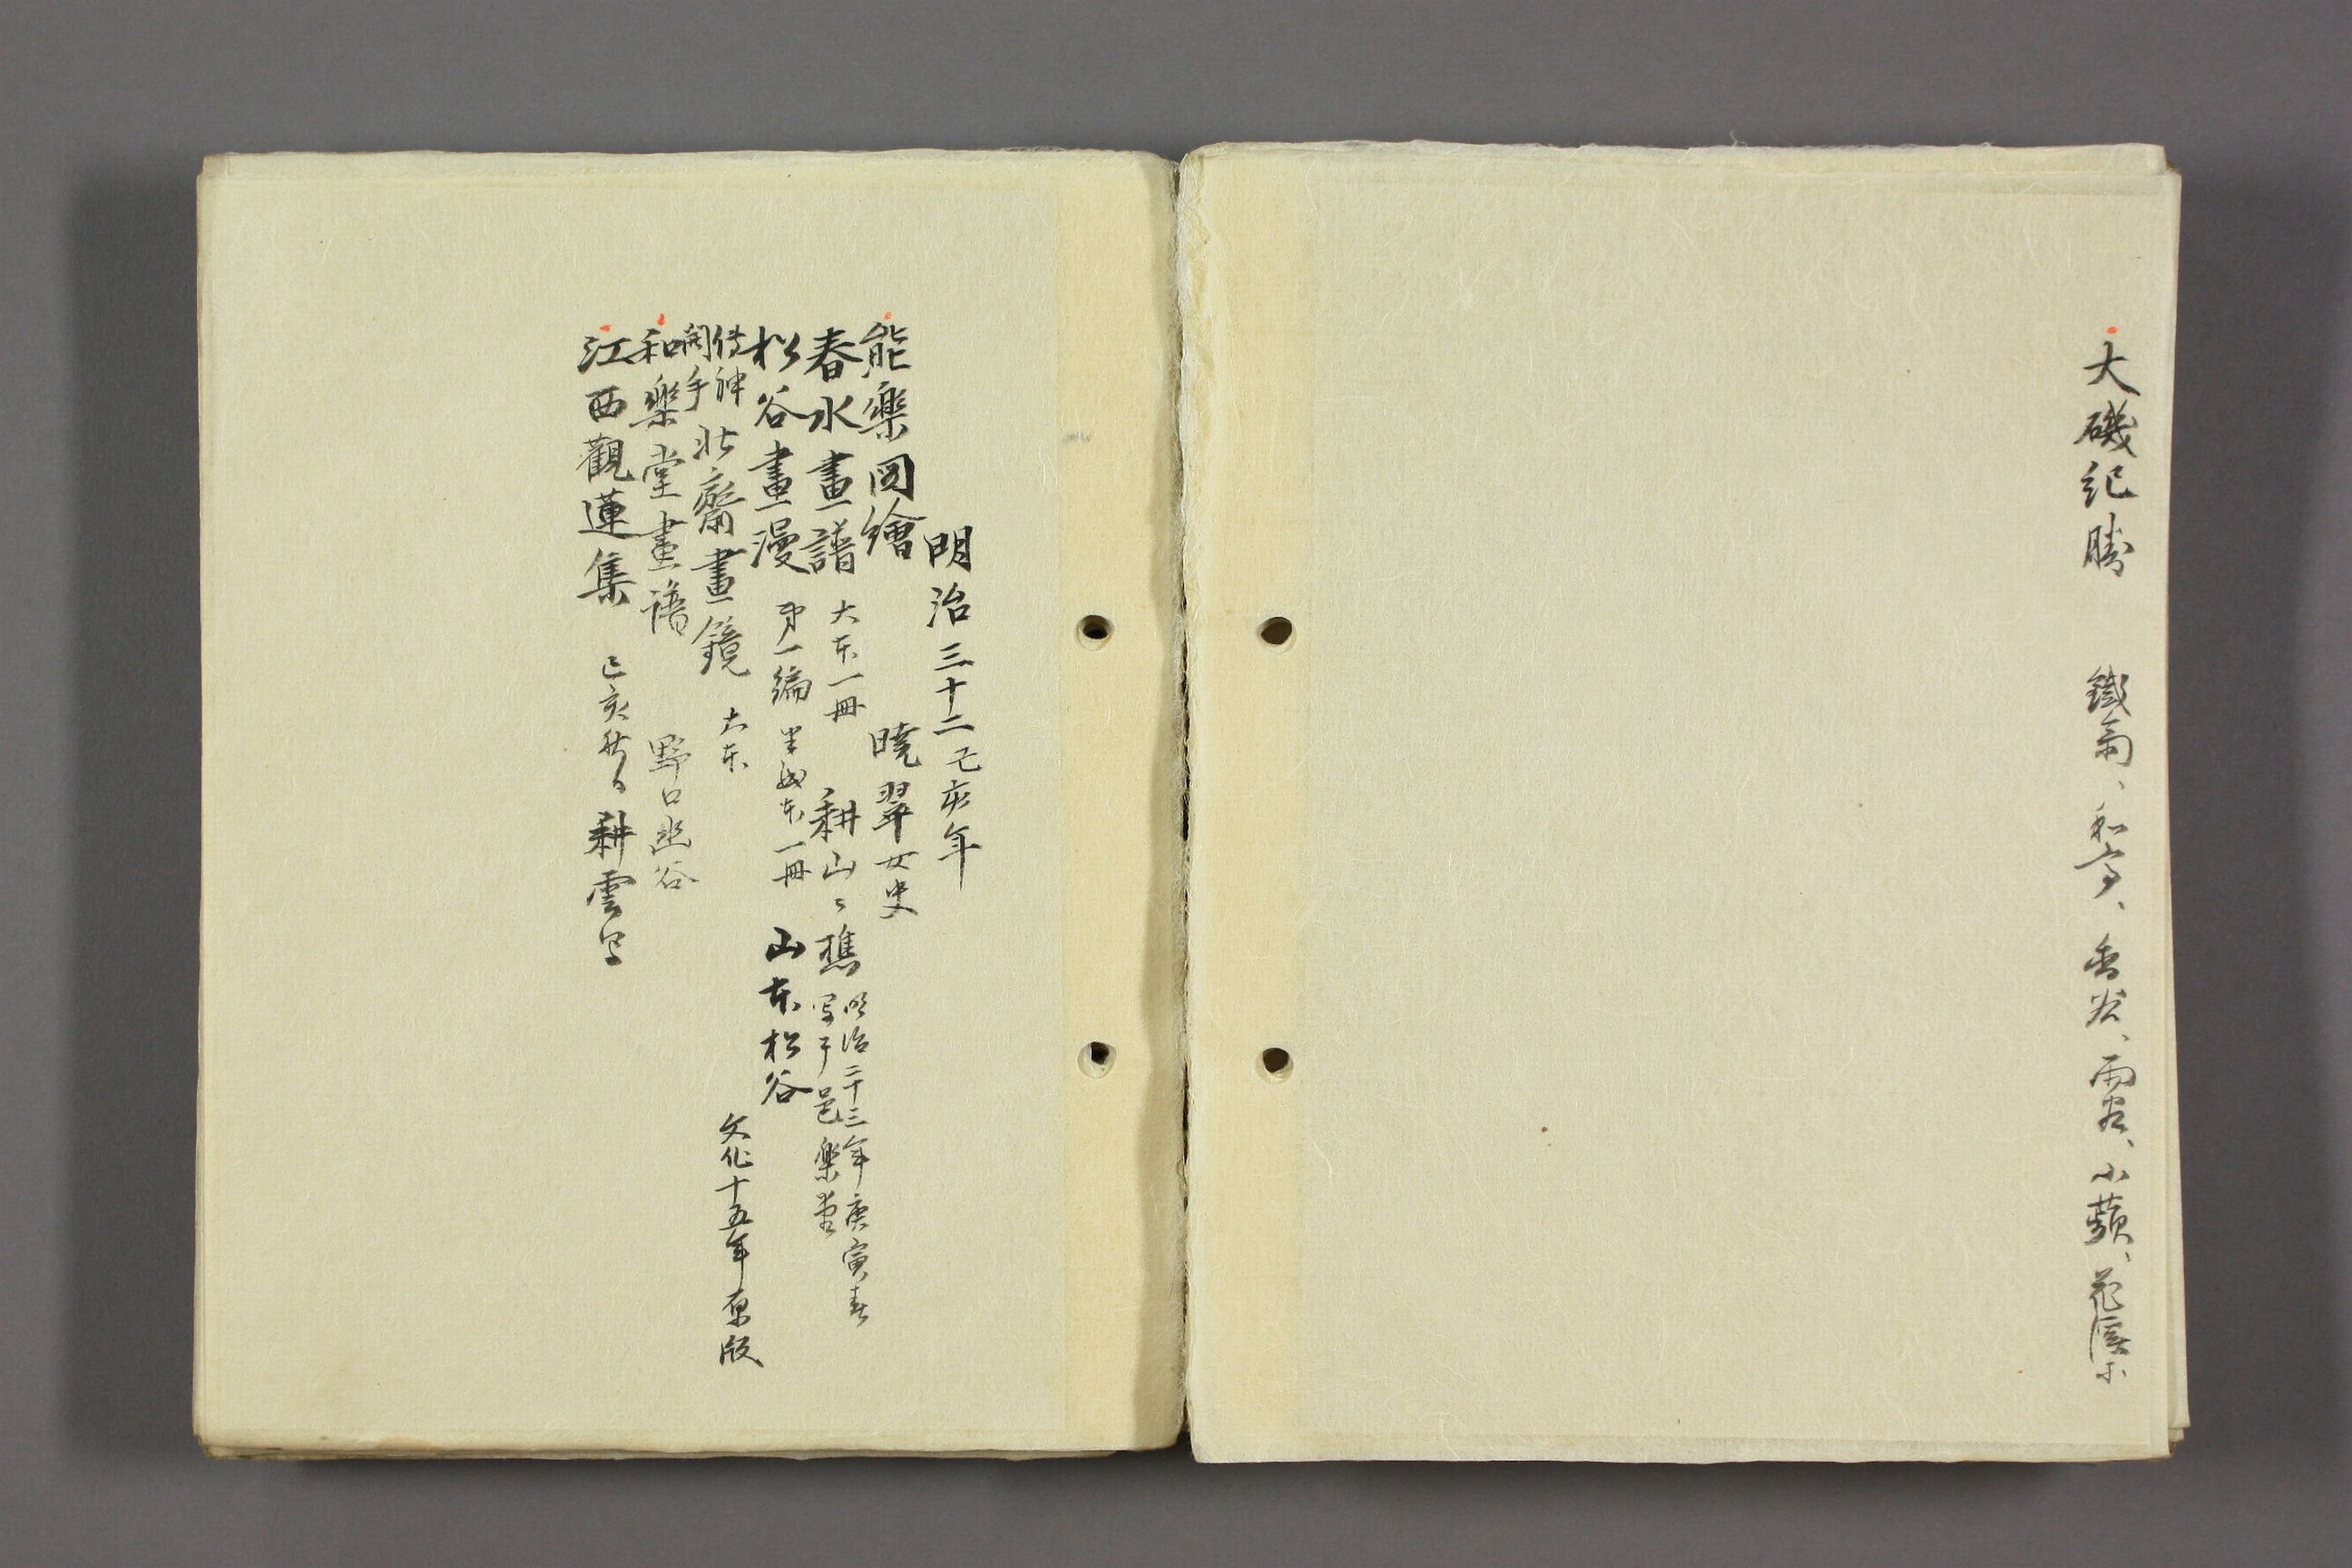 大磯紀勝 鐵翁、和亭、香谷、雨谷、小蘋、花溪等
明治三十二己亥年
能樂圖繪 曉翠女史
春水畫譜 大本一冊 耕山々樵 明治二十三年庚寅春
写于邑樂堂
松谷畫漫 第一編 半紙本一冊 山本松谷
傳神
開手 北齋畫鏡 大本 文化十五年原版
和樂堂畫譜 野口幽谷
江西觀蓮集 己亥秋日 耕雲写